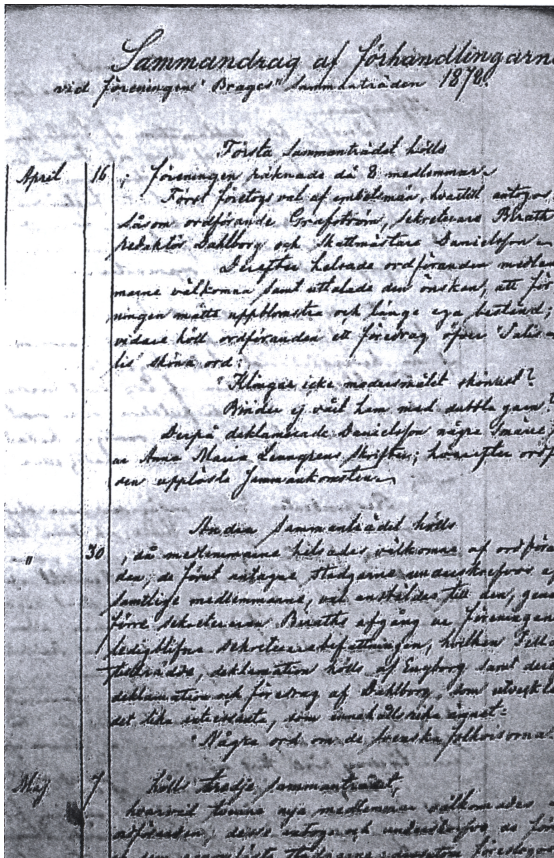 Sammandrag af förhandlingarne
vid föreningens "Brages" sammanträden 1878.
Första sammanträdet hölls
April 16, föreningen räknade då 8 medlemmar.
Först företogs val af embetsmän, hvartill antogos,
såsom ordförande Grafström, sekreterare Birath
redaktör Dahlborg och Skattmästare Danielsson.
Derefter helsade ordföranden medlem
marne välkomna samt uttalade den önskan, att för
ningen måtte uppblomstra och länge ega bestånd;
vidare höll ordföranden ett föredrag öfver
lis' sköna ord:
"Klingar icke modersmålet skönast?
Binder ej vårt hem med dubbla garn?
Derpå deklamerade Danielsson några
av Anna Maria Lenngrens skrifter; hvarefter ordf
den upplöste sammankomsten.
Andra sammanträdet hölls
" 30, då medlemmarne helsades välkomne af ordföran
den, de förut antagne stadgarne underskrefvos
samtlige medlemmarne, val anställdes till den, genom
förre sekreteraren Biraths afgång ur föreningen
ledigblifna sekreterarebefattningen, hvilken
tillträdde, deklamation hölls af Engborg samt
deklamation och föredrag af Dahlborg, som
det lika intressanta, som innehållsrika ämnet:
"Några ord om de svenska folkvisorna.
Maj 7 hölls tredje sammanträdet,
hvarvid tvenne nya medlemmar välkomnades
ordföranden; desse antogo och underskrefvo de